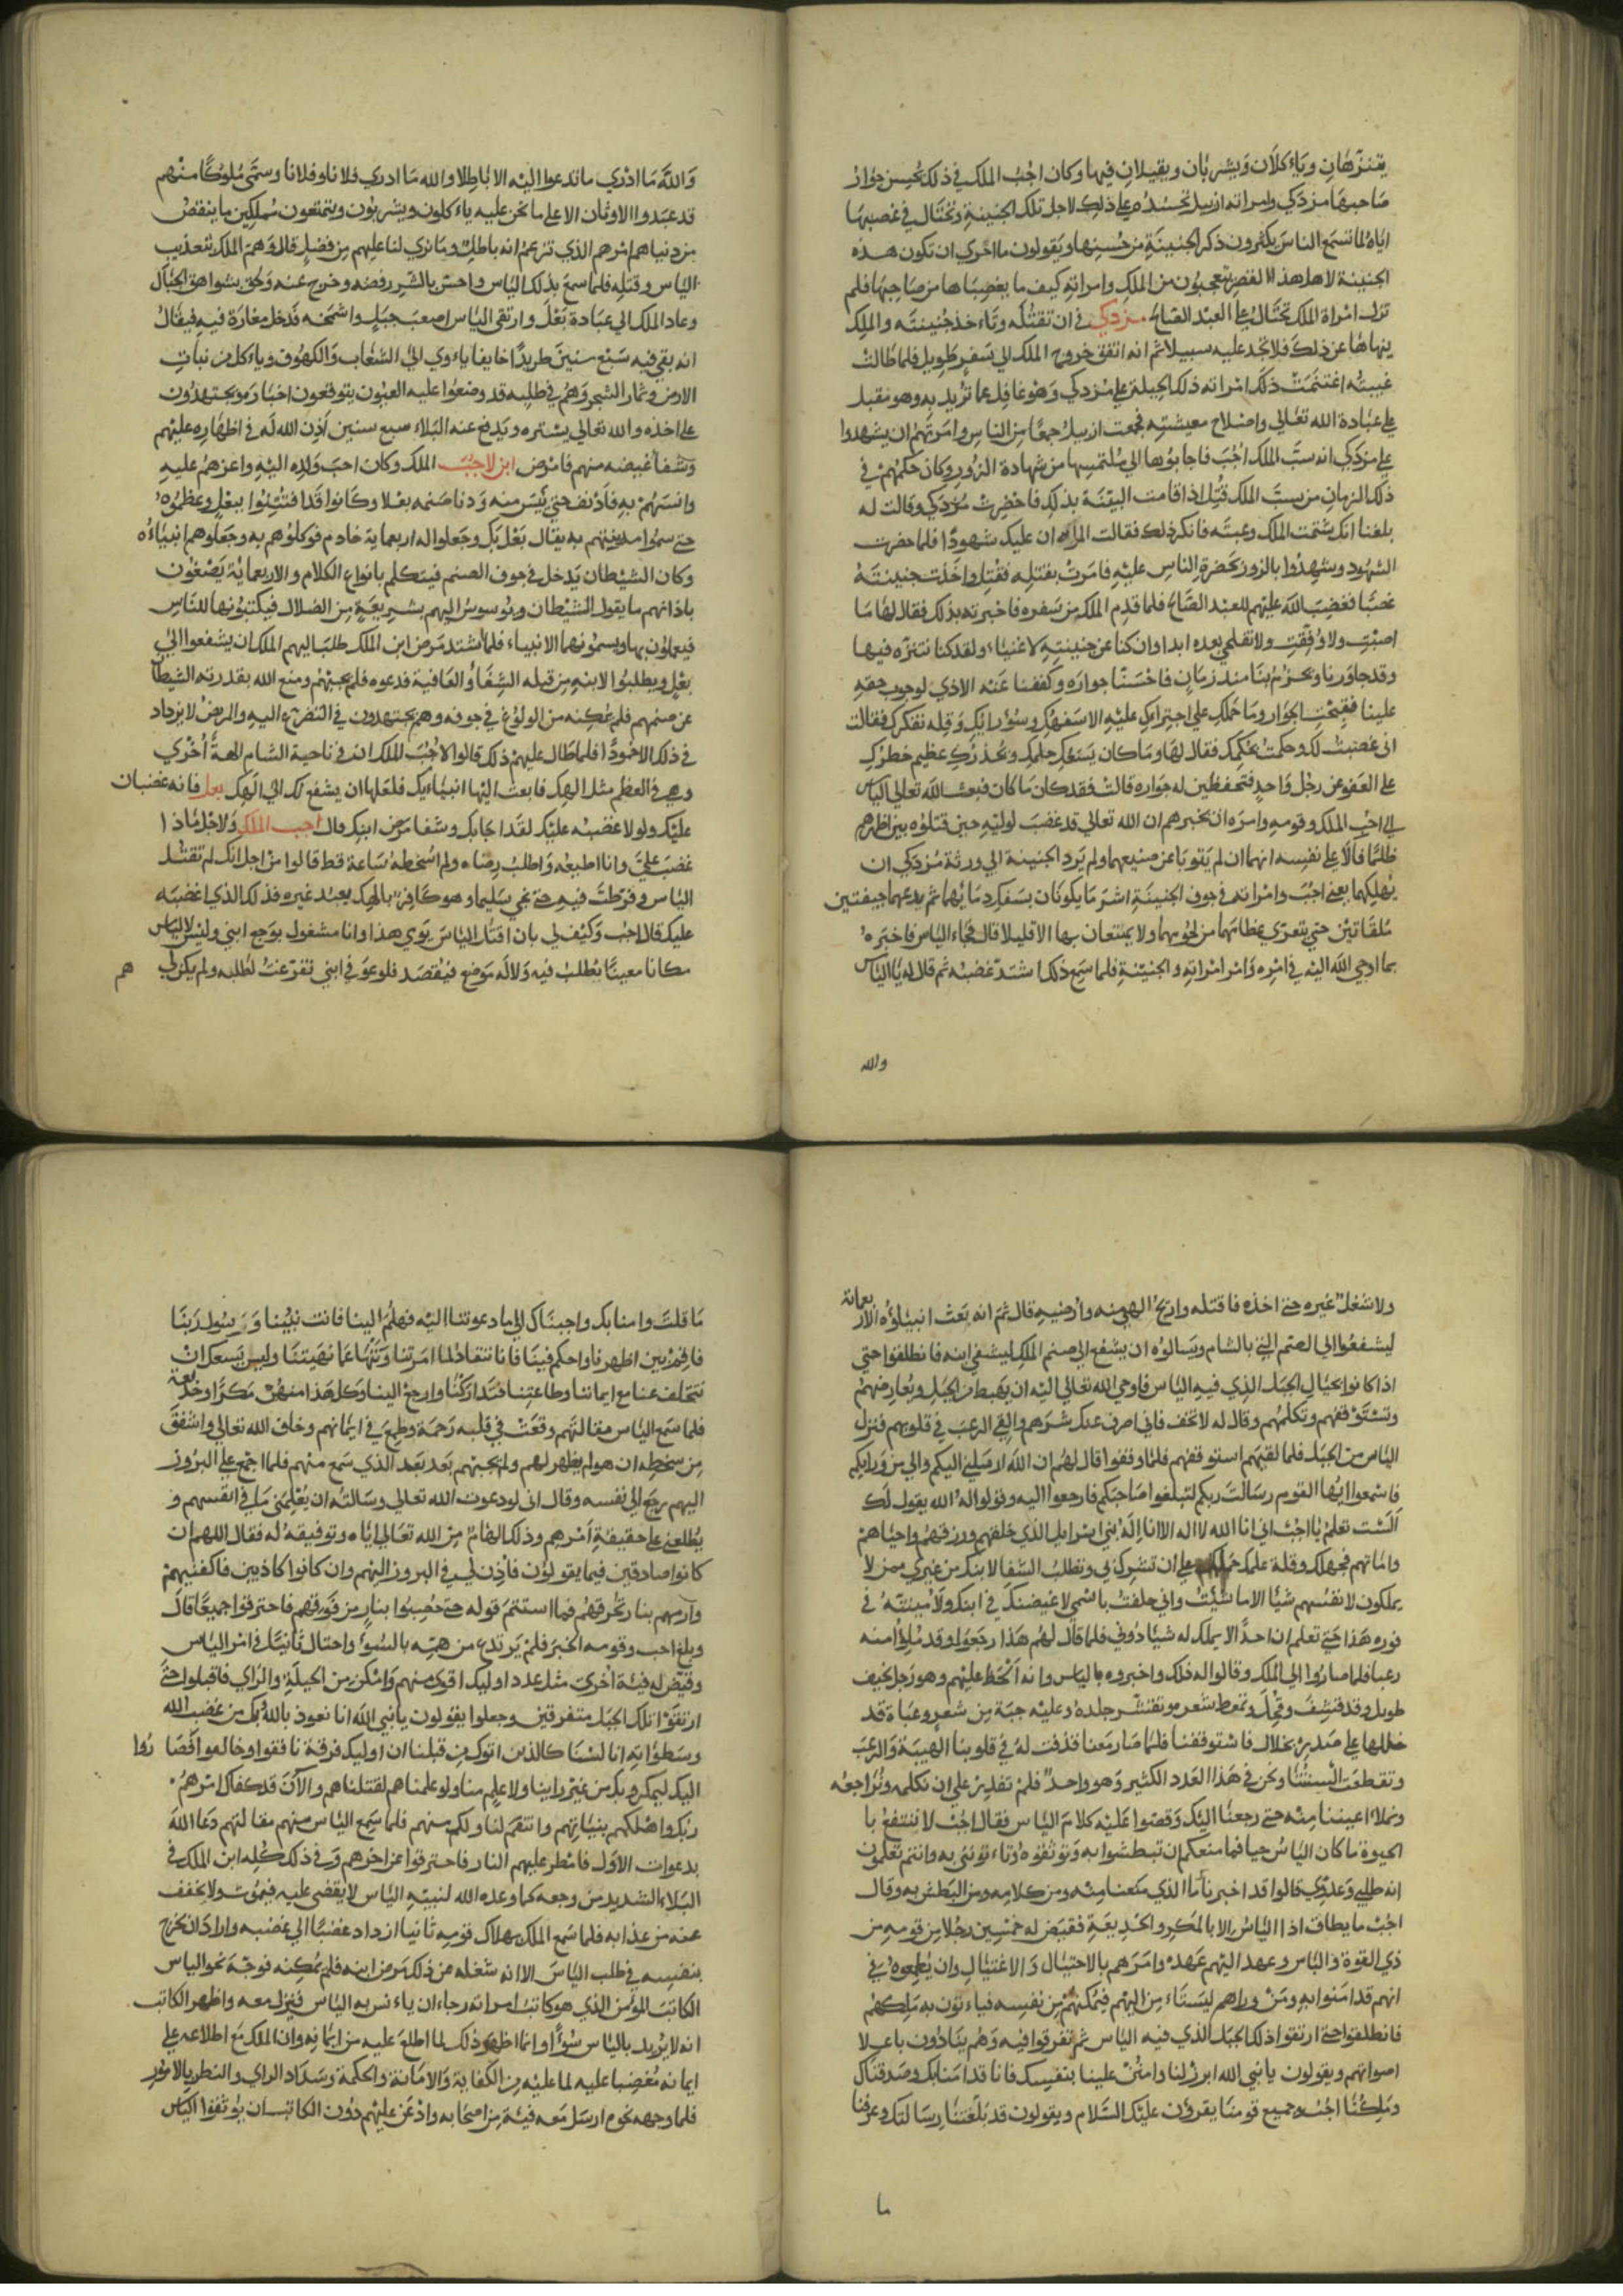 يتنزهان وياءكلان ويشربان ويقيلان فيها وكان اجب الملك في ذلك يحسن جوار
صاحبها مزدكي وامراته ازبيل تحسده على ذلك لاجل تلك الجنينة وتحتال في غصبها
اياه لما تسمع الناس يكثرون ذكر الجنينة من حسنها ويقولون ما احرى ان تكون هذه
الجنينة لاهل هذا القصر يتعجبون من الملك وامراته كيف ما يغصباها من صاحبها فلم
تزل امراة الملك تحتال على العبد الصالح مزدكي في ان تقتله وتاءخذ جنينته والملك
ينهاها عن ذلك فلا تجد عليه سبيلا ثم انه اتفق خروج الملك الى سفر طويل فلما طالت
غيبته اغتنمت ذلك امراته ذلك الحيلة على مزدكي وهو غافل عما تريد به وهو مقبل
على عبادة الله تعالى واصلاح معيشته فجمعت ازبيل جمعا من الناس وامرتهم ان يشهدوا
على مزدكي انه سب الملك اجب فاجابوها الى ملتمسها من شهادة الزور وكان حكمهم في
ذلك الزمان من يسب الملك قتل اذا قامت البينة بذلك فاحضرت مزدكي وقالت له
بلغنا انك شتمت الملك وعبته فانكر ذلك فقالت المراة ان عليك شهودا فلما حضرت
الشهود وشهدوا بالزور بحضرة الناس عليه فامرت بقتله فقتل واخذت جنينته
غصبا فغضب الله عليهم للعبد الصالح فلما قدم الملك من سفره فاخبرته بذلك فقال لها ما
اصبت ولا وفقت ولا تفلحي بعده ابدا وان كنا عن جنينته لاغنياء ولقد كنا نتنزه فيها
وقد جاورنا وتحرم بنا منذ زمان فاحسنا جواره وكففنا عنه الاذى لوجوب حقه
علينا فقبحت الجوار وما حملك على اجترايك عليه الا سفهك وسوء رايك وقلة تفكرك فقالت
انى غضبت لك وحكمت بحكمك فقال لها وما كان يسعك حلمك وتحذرك عظيم خطرك
على العفو عن رجل واحد فتحفظين له جواره قالت فقد كان ما كان فبعث الله تعالى الياس
الى اجب الملك وقومه وامره ان يخبرهم ان الله تعالى قد غضب لوليه حين قتلوه بين اظهرهم
ظلما فالا على نفسه انهما ان لم يتوبا عن صنيعهما ولم يرد الجنينة الى ورثة مزدكي ان
يهلكهما يعني اجب وامراته في جوف الجنينة اشر ما يكونان بسفك دمائهما ثم يدعهما جيفتين
ملقاتين حتى يتعرى عظامهما من لحومهما ولا يمتتعان بها الا قليلا قال فجاء الياس فاخبره
بما اوحى الله اليه في امره وامر امراته والجنينة فلما سمع ذلك اشتد غضبه ثم قال له يا الياس
والله
والله ما ادري ما تدعوا اليه الا باطلا والله ما ادري فلانا وفلانا وسمى ملوكا منهم
قد عبدوا الاوثان الا على ما نحن عليه ياءكلون ويشربون ويتمتعون مملكين ما ينقص
من دنياهم امرهم الذي تزعم انه باطل وما نرى لنا عليهم من فضل قال وهم الملك بتعذيب
الياس وقتله فلما سمع بذلك الياس واحس بالشر رفضه وخرج عنه ولحق بشواهق الجبال
وعاد الملك الى عبادة بعل وارتقى الياس اصعب جبل واشمخه فدخل مغارة فيه فيقال
انه بقي فيه سبع سنين طريدا خايفا ياءوي الى الشعاب والكهوف وياءكل من نبات
الارض وثمار الشجر وهم في طلبه قد وضعوا عليه العيون يتوقعون اخباره ويجتهدون
على اخذه والله تعالى يستره ويدفع عنه البلاء سبع سنين اذن الله له في اظهاره عليهم
وشفا غيضه منهم فامرض ابن لاجب الملك وكان احب ولده اليه واعزهم عليه
وانسهم به فادنف حتى يئس منه ودنا صنمه بعلا وكانوا قد افتتنوا ببعل وعظموه
حتى سموا مدينتهم به يقال بعل بك وجعلوا له اربعماية خادم فوكلوهم به وجعلوهم انبياءه
وكان الشيطان يدخل في جوف الصنم فيتكلم بانواع الكلام والاربعماية يصغون
باذانهم ما يقول الشيطان ويوسوس اليهم بشريعة من الضلال فيكتبونها للناس
فيعملون بها ويسمونهما الانبياء فلما اشتد مرض ابن الملك طلب اليهم الملك ان يشفعوا الى
بعل ويطلبوا لابنه من قبله الشفا والعافية فدعوه فلم يجبهم ومنع الله بقدرته الشيطان
عن صنمهم فلم يمكنه من الولوغ في جوفه وهم يجتهدون في التضرع اليه والمريض لا يزداد
في ذلك الا خمودا فلما طال عليهم ذلك قالوا لاجب الملك ان في ناحية الشام الهة اخرى
وهي في العظم مثل الهك فابعث اليها انبياءيك فلعلها ان يشفع لك الى الهك بعل فانه غضبان
عليك ولولا غضبه عليك لقد اجابك وشفا مرض ابنك قال اجب الملك ولاجل ماذا
غضب علي وانا اطيعه واطلب رضاه ولم اسخطه ساعة قط قالوا من اجل انك لم تقتل
الياس وفرطت فيه حتى نجى سليما وهو كافر بالهك يعبد غيره فذلك الذي اغضبه
عليك قال اجب وكيف لي بان اقتل الياس يوي هذا وانا مشغول بوجع ابني وليس لالياس
مكانا معينا يطلب فيه ولا له موضع فيقصد فلو عوفي ابني تفرغت لطلبه ولم يكن لي هم
ولا شغل غيره حتى اخذه فاقتله واريح الهي منه وارضيه قال ثم انه بعث انبياؤه الاربعماية
ليشفعوا الى الصنم التي بالشام ويسالوه ان يشفع الى صنم الملك ليشفي ابنه فانطلقوا حتى
اذا كانوا بحيال الجبل الذي فيه الياس فاوحى الله تعالى اليه ان يهبط من الجبل ويعارضهم
وتستوقفهم وتكلمهم وقال له لا تخف فاني اصرف عنك شرهم والقي الرعب في قلوبهم فنزل
الياس من الجبل فلما لقيهم استوقفهم فلما وقفوا قال لهم ان الله ارسلني اليكم والى من ورايكم
فاسمعوا ايها القوم رسالت ربكم لتبلغوا صاحبكم فارجعوا اليه وقولوا له الله يقول لك
الست تعلم يا اجب اني انا الله لا اله الا انا اله بني اسرايل الذي خلقهم ورزقهم واحياهم
واماتهم فجهلك وقلة علمك حملك على ان تشرك بي وتطلب الشفا لابنك من غيري ممن لا
يملكون لانفسهم شيئا الا ما شئت واني حلفت باسمي لاغيضنك في ابنك ولاميتنه في
فوره هذا حتى تعلم ان احدا لا يملك له شيئا دوني فلما قال لهم هذا رجعوا وقد ملؤا منه
رعبا فلما صاروا الى الملك وقالوا له ذلك واخبروه بالياس وانه انحط عليهم وهو رجل نحيف
طويل وقد قشف وقحل وتمعط شعره وتقشر جلده وعليه جبة من شعر وعباة قد
خللها على صدره بخلال فاستوقفنا فلما صار معنا قذفت له في قلوبنا الهيبة والرعب
وتقطعت السنتنا ونحن في هذا العدد الكثير وهو واحد فلم نقدر على ان نكلمه ونراجعه
ونملاء اعيننا منه حتى رجعنا اليك وقصوا عليه كلام الياس فقال اجب لا ننتفع با
الحيوة ما كان الياس حيا فما منعكم ان تبطشوا به وتوثقوه وتاءتوني به وانتم تعلمون
انه طلبي وعدوي قالوا قد اخبرناك ما الذي منعنا منه ومن كلامه ومن البطش به وقال
اجب ما يطاق اذا الياس الا بالمكر والخديعة فقيض له خمسين رجلا من قومه من
ذي القوة والباس وعهد اليهم عهده وامرهم بالاحتيال والاغتيال وان يطمعوه في
انهم قد امنوا به ومن وراهم ليستاءمن اليهم فيمكنهم من نفسه فياءتون به ملكهم
فانطلقوا حتى ارتقوا ذلك الجبل الذي فيه الياس ثم تفرقوا فيه وهم ينادون باعلا
اصواتهم ويقولون يا نبي الله ابرز لنا وامنن علينا بنفسك فانا قد امنا بك وصدقناك
وملكنا اجب وجميع قومنا يقرؤن عليك السلام ويقولون قد بلغتنا رسالتك وعرفنا
ما
ما قلت وامنا بك واجبناك الى ما دعوتنا اليه فهلم الينا فانت نبينا ورسول ربنا
فاقم بين اظهرنا واحكم فينا فانا ننقاد لما امرتنا وننتهي عما نهيتنا وليس يسعك ان
تتخلف عنا مع ايماننا وطاعتنا فتداركنا وارجع الينا وكل هذا منهم مكرا وخديعة
فلما سمع الياس مقالتهم وقعت في قلبه رحمة وطمع في ايمانهم وخاف الله تعالى واشفق
من سخطه ان هو لم يظهر لهم ولم يجبهم بعد بعد الذي سمع منهم فلما اجمع على البروز
اليهم رجع الى نفسه وقال اني لو دعوت الله تعالى وسالته ان يعلمني ما في انفسهم و
يطلعني على حقيقة امرهم وذلك الهام من الله تعالى اياه وتوفيقه له فقال اللهم ان
كانوا صادقين فيما يقولون فاذن لي في البروز اليهم وان كانوا كاذبين فاكفنيهم
وارمهم بنار تحرقهم فما استتم قوله حتى حصبوا بنار من فوقهم فاحترقوا جميعا قال
وبلغ اجب وقومه الخبر فلم يرتدع من همه بالسوء واحتال ثانيا في امر الياس
وقيض له فية اخرى مثل عدد اوليك اقوى منهم وامكن من الحيلة والراي فاقبلوا حتى
ارتقوا تلك الجبل متفرقين وجعلوا يقولون يا نبي الله انا نعوذ بالله وبك من غضب الله
وسطوته انا لسنا كالذين اتوك من قبلنا ان اوليك فرقة نافقوا وخالفوا فصاروا
اليك ليمكروا بك من غير راينا ولا علم منا ولو علمنا هم لقتلناهم والآن قد كفاك امرهم
ربك واهلكهم بنياتهم وانتقم لنا ولك منهم فلما سمع الياس منهم مقالتهم دعا الله
بدعوات الاول فامطر عليهم النار فاحترقوا عن اخرهم وفي ذلك كله ابن الملك في
البلاء الشديد من وجعه كما وعده الله لنبيه الياس لا يقضى عليه فيموت ولا يخفف
عنه من عذابه فلما سمع الملك بهلاك قومه ثانيا ازداد غضبا الى غضبه واراد ان يخرج
بنفسه في طلب الياس الا انه شغله من ذلك مرض ابنه فلم يمكنه فوجه نحو الياس
الكاتب المؤمن الذي هو كاتب امراته رجاء ان ياءنس به الياس فينزل معه واظهر الكاتب
انه لا يريد بالياس سوءا وانما اظهر ذلك لما اطلع عليه من ايمانه وان الملك مع اطلاعه على
ايمانه مغضبا عليه لما عليه من الكفاية والامانة والحكمة وسداد الراي والنظر بالامور
فلما وجهه نحوه ارسل معه فية من اصحابه واذعن عليهم دون الكاتب ان يوثقوا الياس